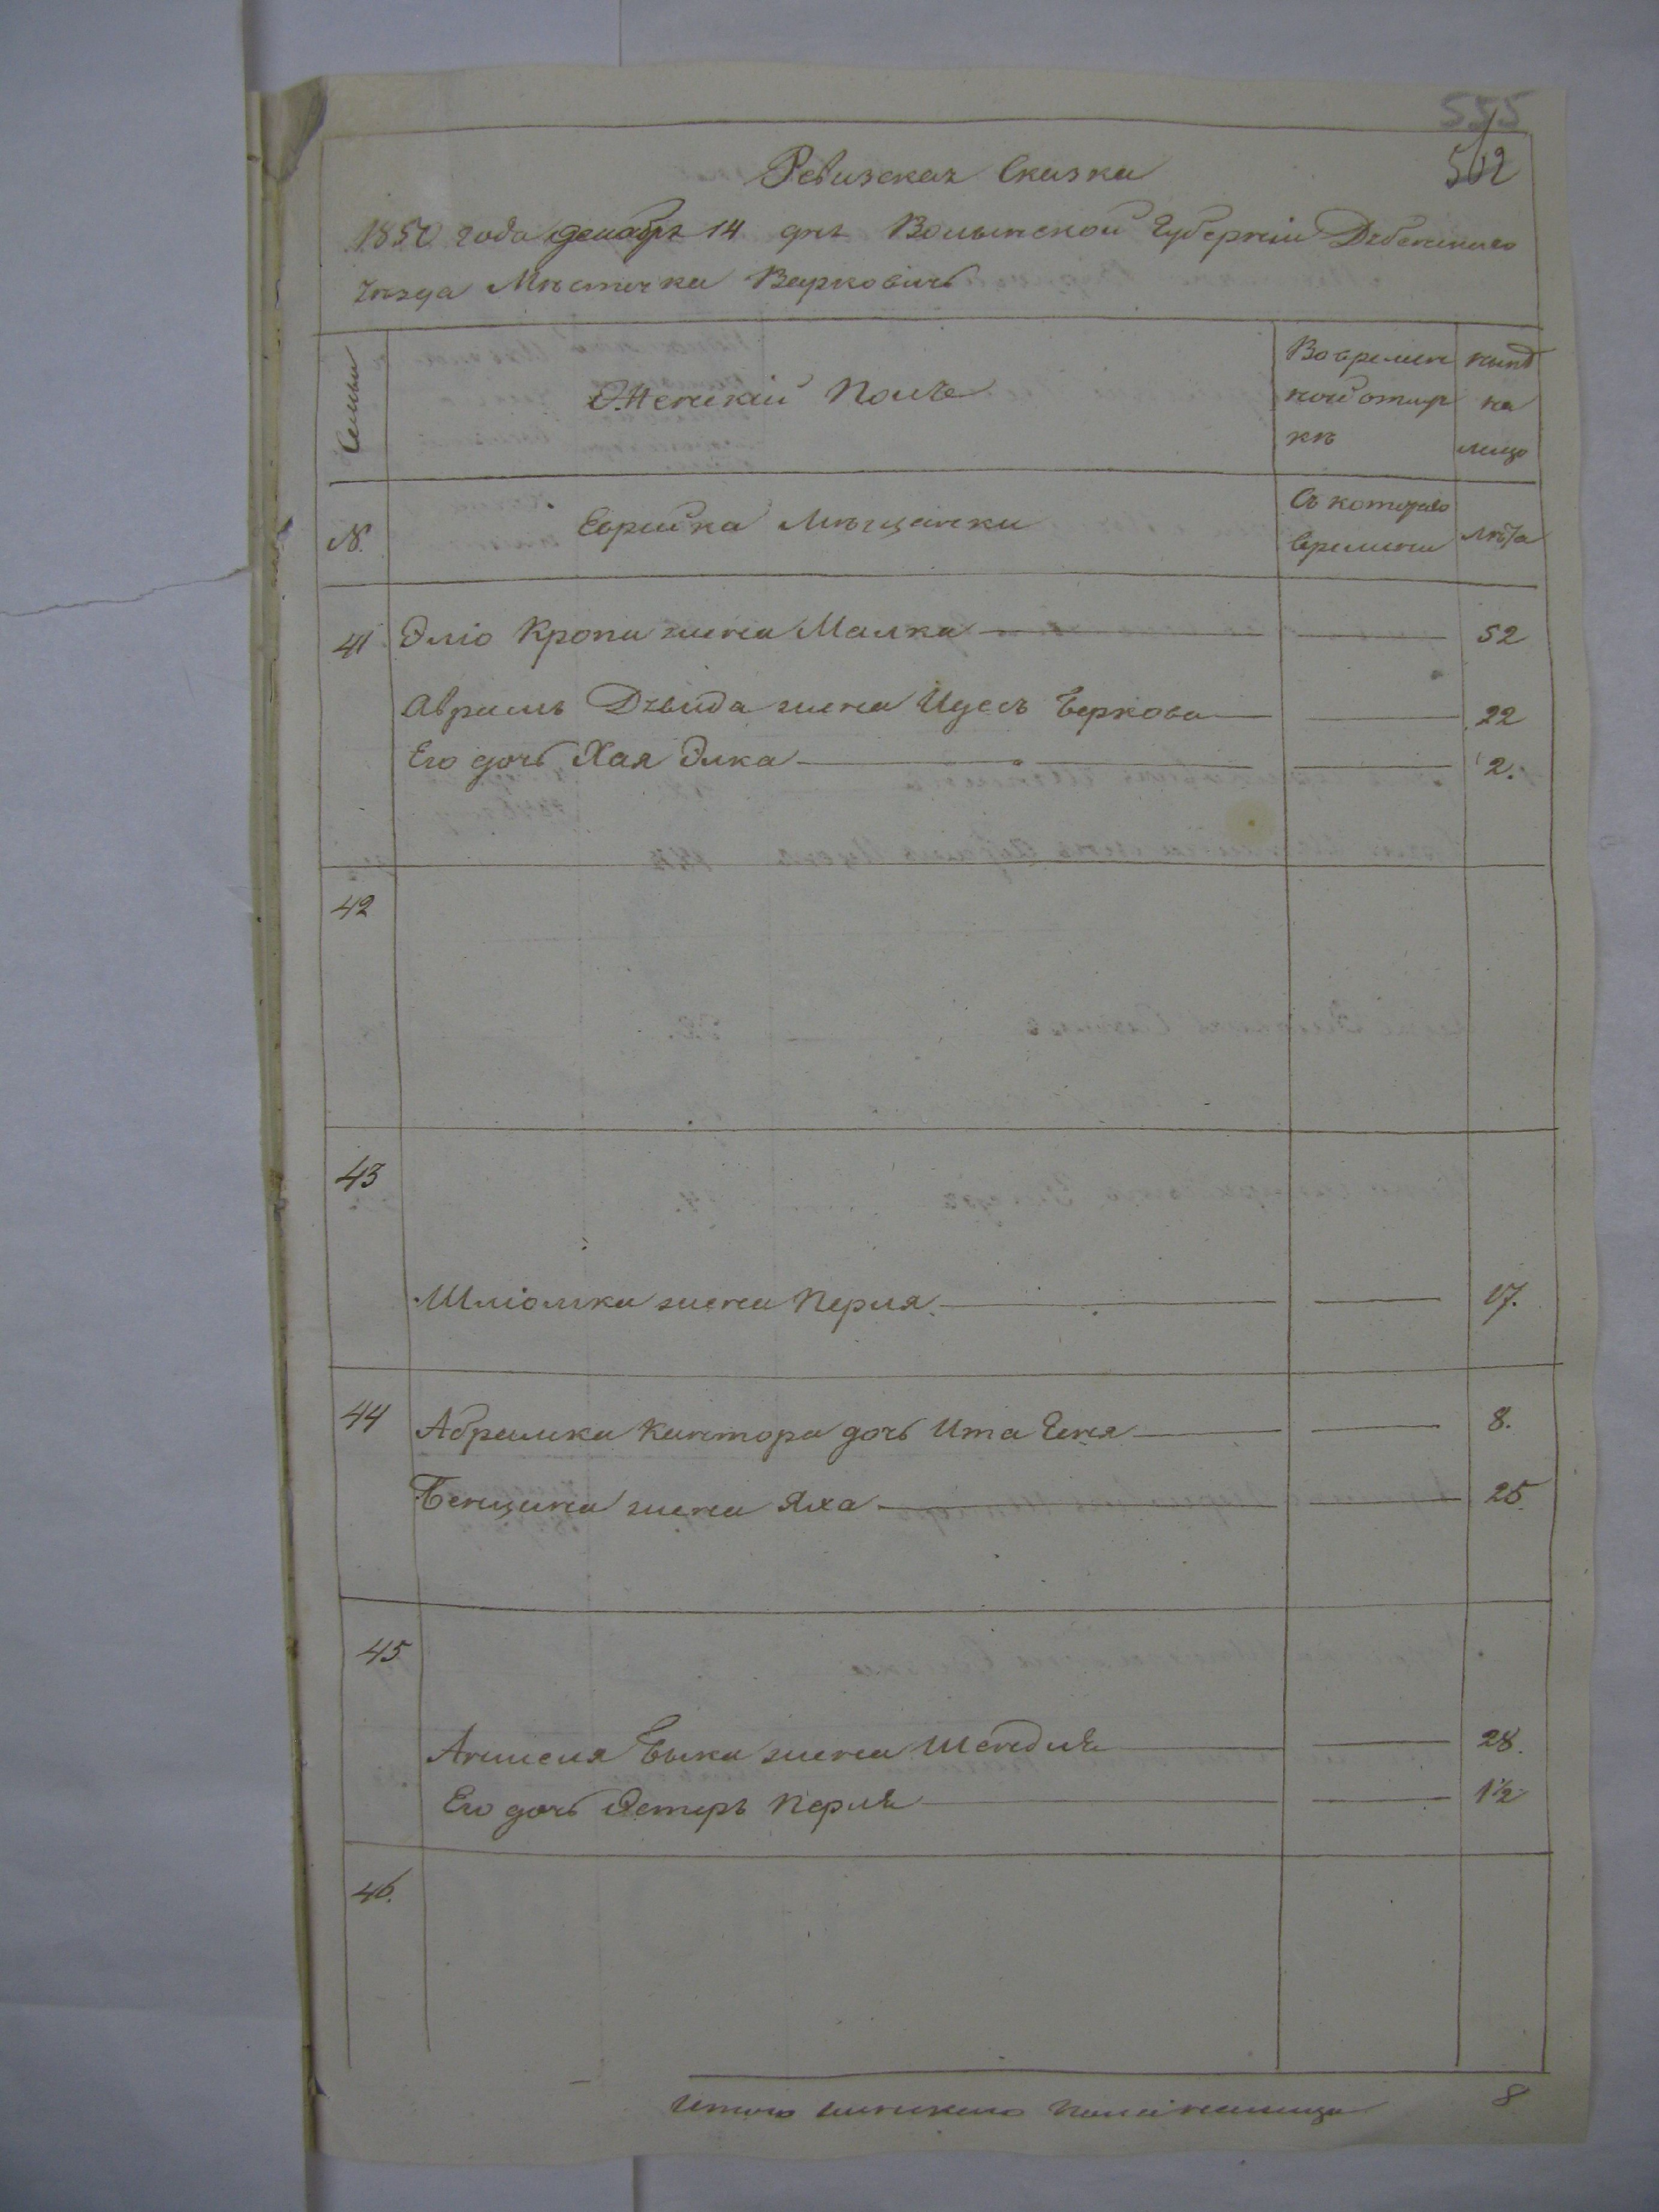 555
502
Ревизская Сказка
1850 года декабря 14 дня Волынской Губернiи Дубенскаго
уезда Мѣстечка Варковичь
Семьи
Женскiй Полъ
Во времен
ной отлуч
кѣ
нынѣ
на
лицо
№.
Еврейка Мѣщанки
Съ котораго
времени
лѣта
41 Элiо Кропи жена Малка 52
Аврамъ Дувида жена Идесъ Беркова 22
Его дочь Хая Элка 2.
42
43
Шлiомка жена Перля 17.
44 Абрамка Кантора дочь Ита Геня 8.
Бенциена жена Яха 25.
45
Аншеля Быка жена Шендля 28.
Его дочь Эстеръ Перля 1½
46.
Итого женскаго пола налицо 8